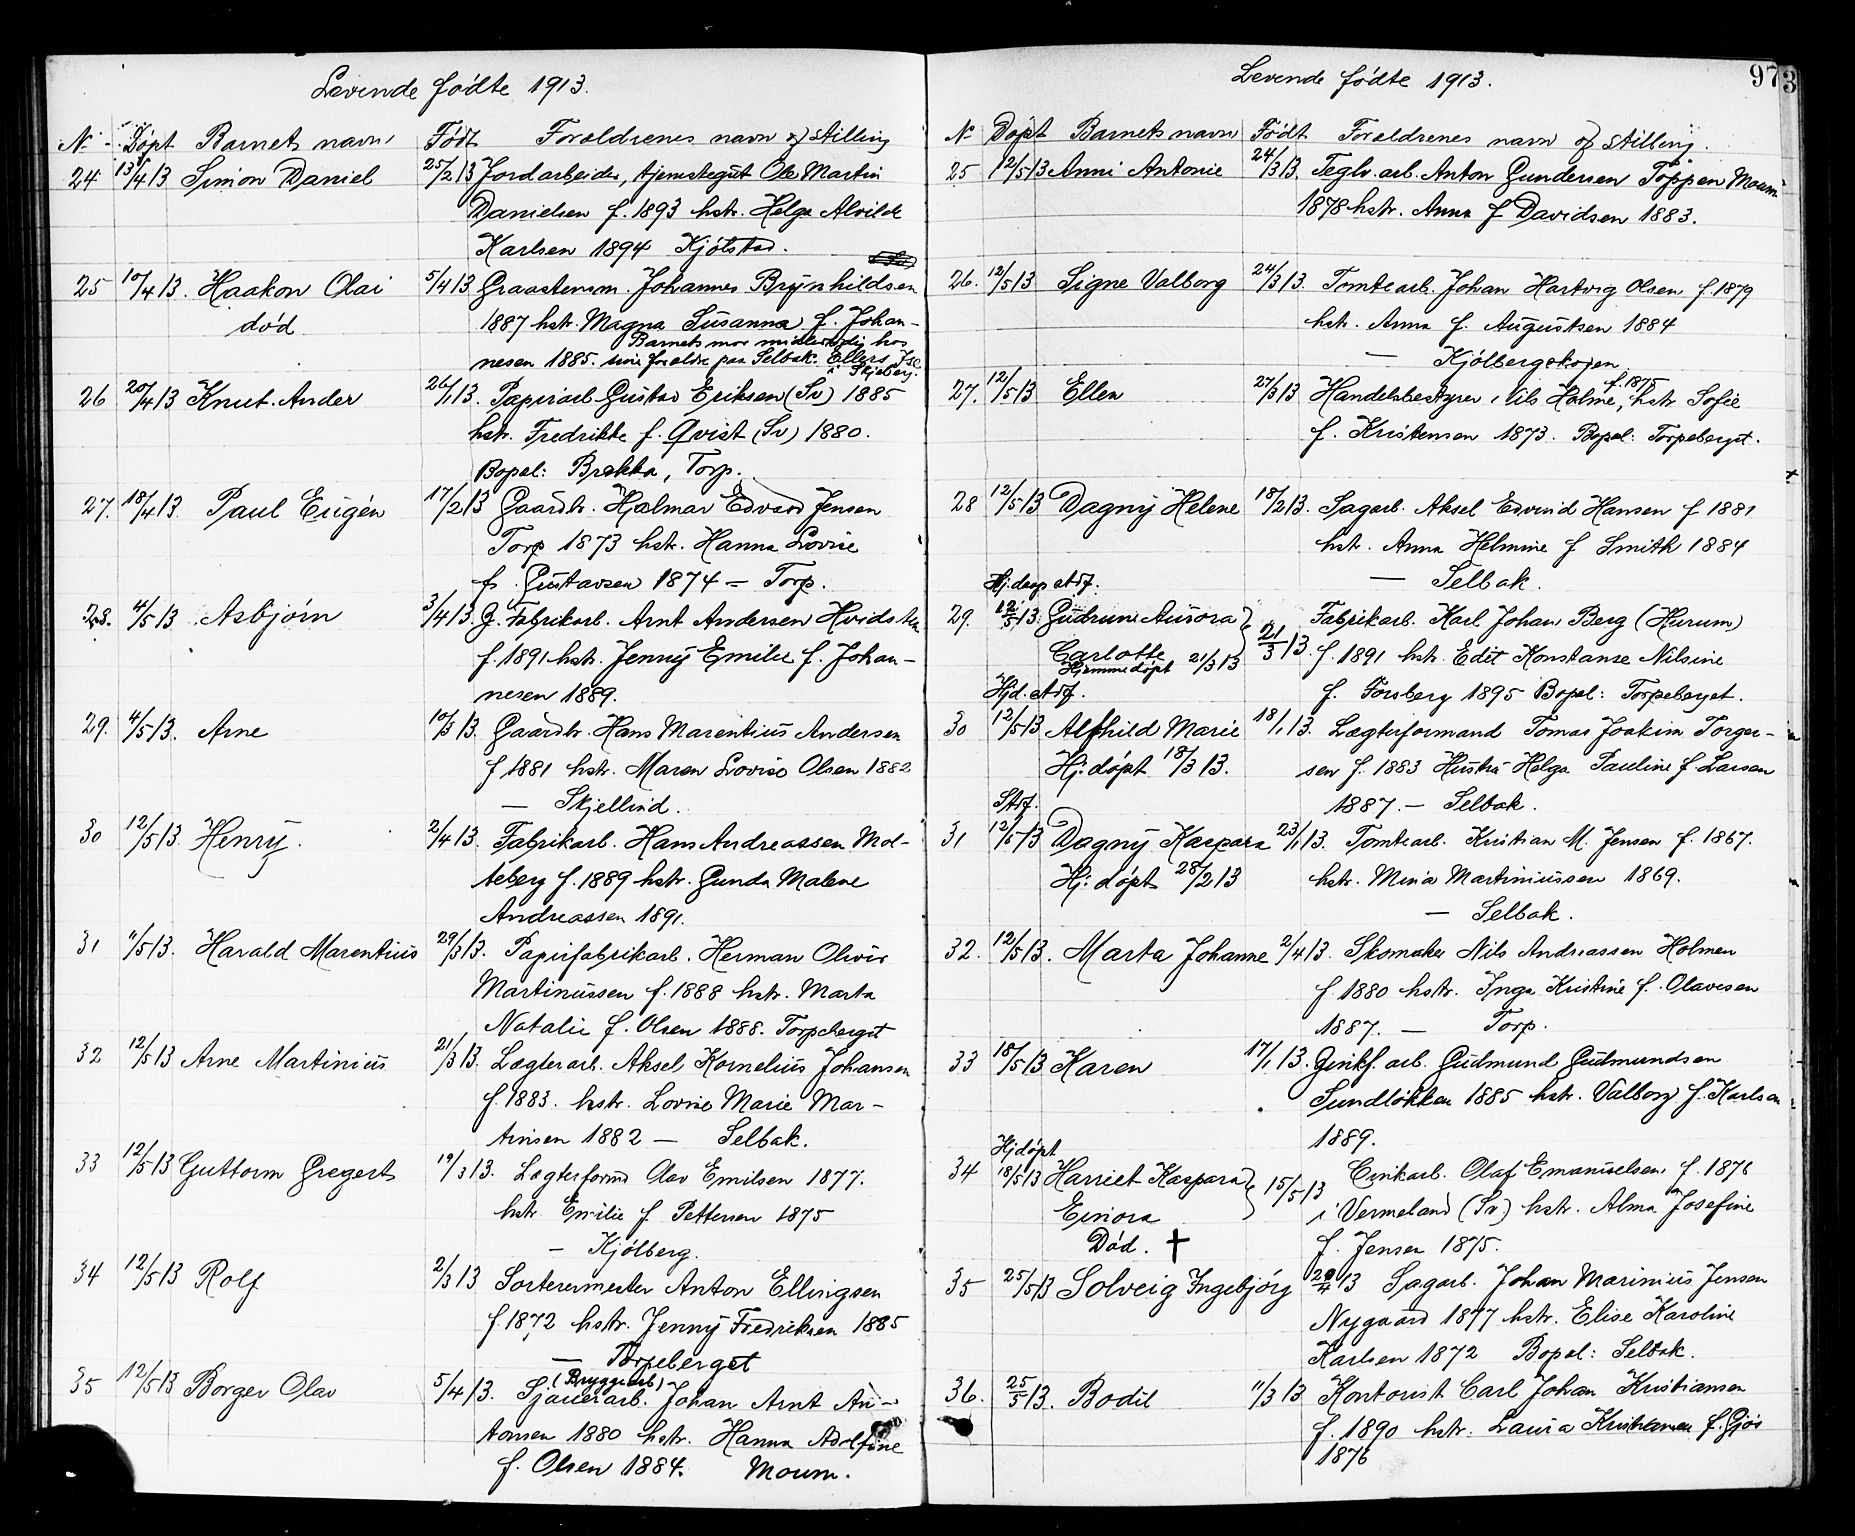 Levende fødte 1913.
No Døpt Barnets navn Født Foreldrenes navn og stilling
24 13/4 13 Simon Daniel 25/2 13 Jordarbeider, tjenestegut Ole Martin
Danielsen f. 1893 hstr. Helga Alvilde
Karlsen 1894 Kjølstad.
25 10/4 13. Haakon Olai 5/4 13 Graastensm. Johannes Brynhildsen
død 1887 hstr. Magna Susanna f. Johan-
Barnets mor midlertidig hos
nesen 1885. sine foreldre paa Selbak.
i Skjeberg.
26 20/4 13 Knut Ander 26/1 13. Papirarb. Gustav Eriksen (Sv) 1885
hstr. Fredrikke f. Qvist (Sv) 1880.
Bopel: Brekka, Torp.
27. 18/4 13. Paul Eugén 17/2 13 Gaardbr. Hjalmar Edvard Jensen
Torp 1873 hstr. Hanna Lovise
f. Gustavsen 1874 — Torp.
28. 4/5 13 Asbjørn 3/4 13. G. Fabrikarb. Arnt Andersen Hvidsten
f. 1891 hstr. Jenny Emilie f. Johan-
nesen 1889.
29. 4/5 13. Arne 10/3 13. Gaardbr. Hans Marentius Andersen
f 1881 hstr. Maren Lovise Olsen 1882
— Skjellind.
30 12/5 13. Henry. 2/4 13. Fabrikarb. Hans Andreassen Mol-
teberg f. 1889 hstr. Gunda Malene
Andreassen 1891.
31 11/5 13. Harald Marentius 29/3 13. Papirfabrikarb. Herman Olivir
Martinussen f. 1888 hstr. Marta
Natalie f. Olsen 1888. Torpeberget
32 12/5 13 Arne Martinius 21/3 13. Lægterarb. Aksel Kornelius Johansen
f. 1883. hstr. Lovise Marie Mar-
tinsen 1882 — Selbak.
33 12/5 13 Guttorm Gregert 19/3 13. Lægterformd Olav Emilsen 1877.
hstr. Emilie f Pettersen 1875
— Kjølberg.
34 12/5 13 Rolf 2/3 13 Sorterermester Anton Ellingsen
f. 1872 hstr. Jenny Fredriksen 1885
— Torpeberget
(Bryggearb)
35 12/5 13 Borger Olav 5/4 13. Sjauerarb. Johan Arnt An-
tonsen 1880 hstr. Hanna Adolfine
f. Olsen 1884. Moum.
Levende fødte 1913.
973
No Døpt Barnets navn Født Foreldrenes navn og stilling.
25 12/5 13 Anni Antonie 24/3 13. Teglv. arb. Anton Gundersen Toppen Moum
1878 hstr. Anna f Davidsen 1883.
26. 12/5 13 Signe Valborg 24/3 13. Tomtearb. Johan Hartvig Olsen f 1879
hstr. Anna f. Augustsen 1884
— Kjølbergskogen
27. 12/5 13 Ellen 27/3 13 Handelsbestyrer Nils Holme, f. 1875 hstr Sofie
f. Kristensen 1873. Bopel: Torpeberget.
28 12/5 13 Dagny Helene 18/2 13. Sagarb. Aksel Edvind Hansen f 1881
hstr. Anna Helmine f Smith 1884
— Selbak.
Hj. daap stdf.
29. 12/5 13 Gudrun Aurora 21/3 13. Fabrikarb. Karl Johan Berg (Hurum)
Carlotte f. 1891 hstr. Edit Konstanse Nilsine
Hjemmedøpt 21/3 13
Hjd. stdf. f. Forsberg 1895 Bopel: Torpeberget.
30 12/5 13 Alfhild Marie 18/1 13. Lægterformand Tomas Joakim Torger-
Hj: døpt 18/3 13. sen f. 1883 Hustru Helga Pauline f Larsen
Stdf. 1887. — Selbak.
31 12/5 13 Dagny Kaspara 23/1 13. Tomtearb. Kristian M. Jensen f. 1867.
Hj: døpt 28/2 13 hstr. Mina Martiniussen 1869.
— Selbak.
32. 12/5 13. Marta Johanne 2/4 13. Skomaker Nils Andreassen Holmen
f. 1880 hstr. Inga Kristine f. Olavesen
1887. — Torp.
33 18/5 13 Karen 17/1 13. Cinkf. arb. Gudmund Gudmundsen
Sundløkken 1885 hstr. Valborg f. Karlsen
1889.
Hjdøpt
34 18/5 13 Harriet Kaspara 15/5 13 Cinkarb. Olaf Emanuelsen f. 1876
Einora i Vermeland (Sv.) hstr. Alma Josefine
Død. † f. Jensen 1875.
35 25/5 13 Solveig Ingebjørg 20/4 13 Sagarb. Johan Marinius Jensen
Nygaard 1877 hstr. Elise Karoline
Karlsen 1872 Bopel: Selbak.
36. 25/5 13. Bodil 11/3 13 Kontorist Carl Johan Kristiansen
f. 1890 hstr. Laura Kristiansen f. Gjøs
1876